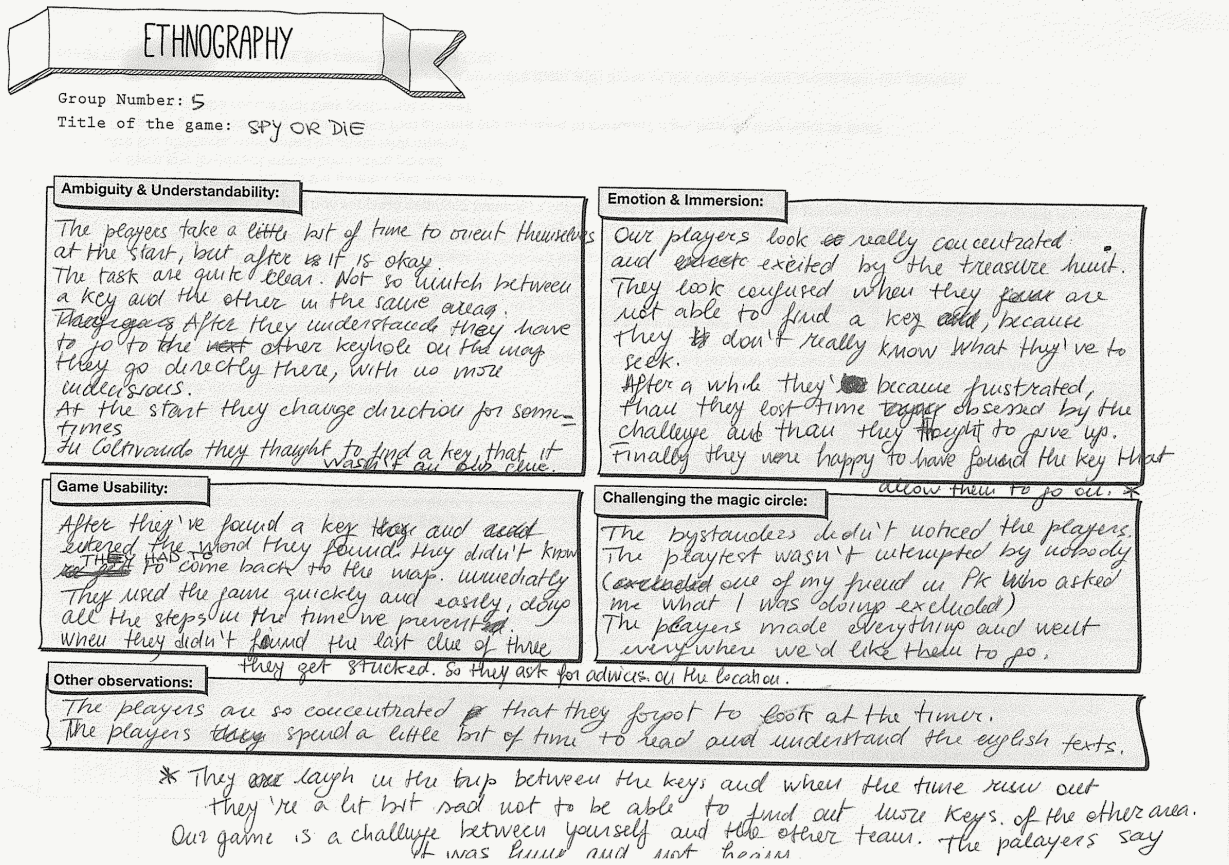 ETHNOGRAPHY
Group Number: 5
Title of the game: SPY OR DIE
Ambiguity & Understandability:
The players take a little bit of time to orient themselves
at the start, but after it is okay
The task are quite clear. Not so much between
a key and the other in the same areas.
After they understands they have
to go to the other keyhole on the map
they go directly there, with no more
indecisious.
At the start they change direction for some=
times
In Coltivando they thought to find a key, that it
wasn't an our clue.
Emotion & Immersion:
Our players look really concentrated
and excited by the treasure hunt.
They look confused when they are
not able to find a key, because
they don't really know what they've to
seek.
After a while they because frustrated,
than they lost time obsessed by the
challenge and than they thought to give up.
Finally they were happy to have found the key that
allow them to go on. *
Game Usability:
After they've found a key and
entered the word they found. they didn't know
THEY HAS TO
to come back to the map. immediatly
They used the game quickly and easily, doing
all the steps in the time we prevent.
when they didn't found the last clue of three
they get stucked. So they ask for advices on the location.
Challenging the magic circle:
The bystanders didn't noticed the players.
The playtest wasn't interrupted by nobody
(one of my friend in PK who asked
me what I was doing excluded)
The players made everything and went
everywhere we'd like them to go.
Other observations:
The players are so concentrated that they forgot to look at the timer.
The players spend a little bit of time to read and understand the english texts.
* They laugh in the trip between the keys and when the time run out
they're a lit bit sad not to be able to find out more keys. of the other area.
Our game is a challenge between yourself and the other team. The palayers say
it was funny and not boring.